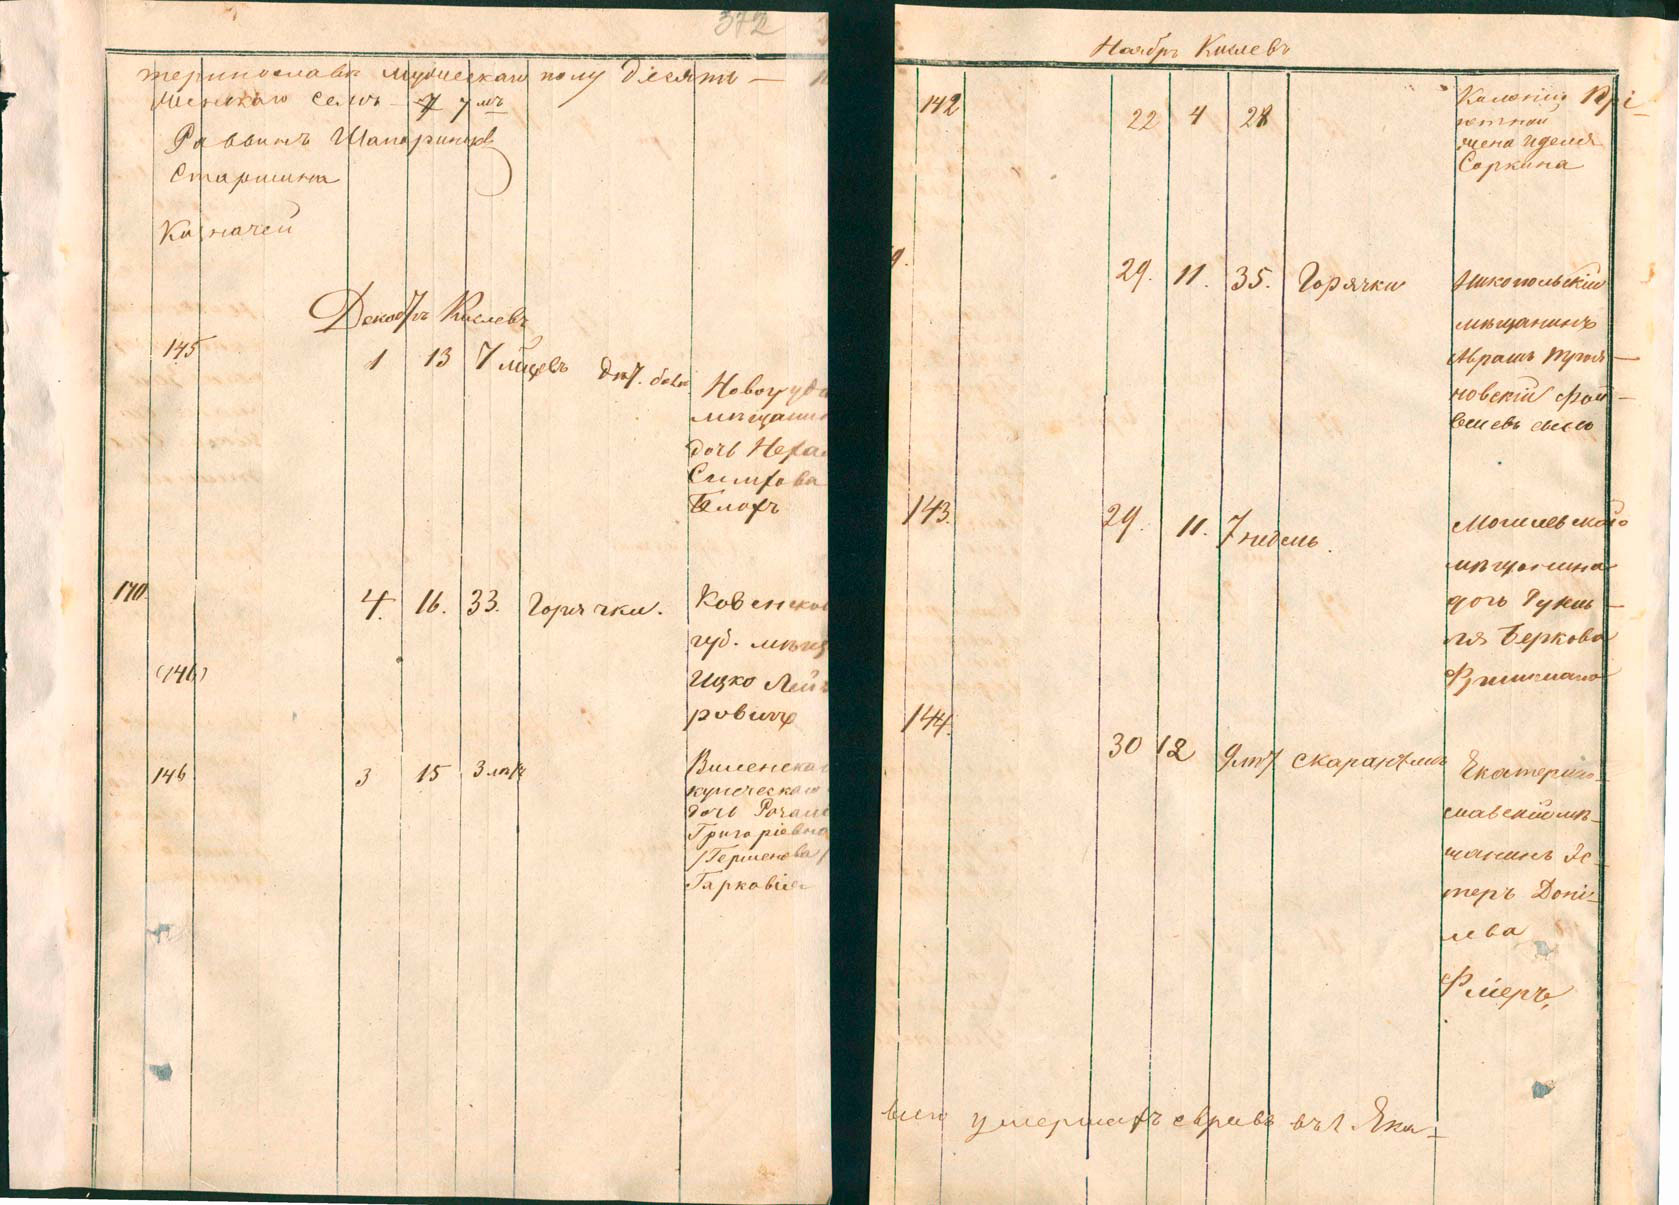 372
теринославѣ мужескаго полу десять —
женскаго семь — 7 7 мь
Раввинъ Шапоринскій
Старшина
Казначей
Декабрь Кислевъ
145 1 13 7 мѣсяцевъ дѣт. бол.
Новогруд
мѣщанин
дочь Неха
Симхова
Блохъ
170 4. 16. 33. Горячки. Ковенской
губ. мѣщ
(146) Ицко Лей
ровичъ
146 3 15 3 лѣтъ Виленскаго
купеческаго
дочь
Григоріевна
/Гершенова/
Гарковіи
Ноябрь Кислевъ
142 22 4 28 Колоніи Прі
ютной
жена Иделя
Соркина
9. 29. 11. 35. Горячки Никопольскій
мѣщанинъ
Абрамъ
новскій Фай
вишевъ сынъ
143. 29. 11. 7 недель. Могилевскаго
мѣщанина
дочь
ля Беркова
144. 30 12 9 лѣт скарлат. Екатерино
славскій мѣ
щанинъ Эс
теръ Дони
лева
Флеръ
всего умершихъ евреевъ въ г. Ека